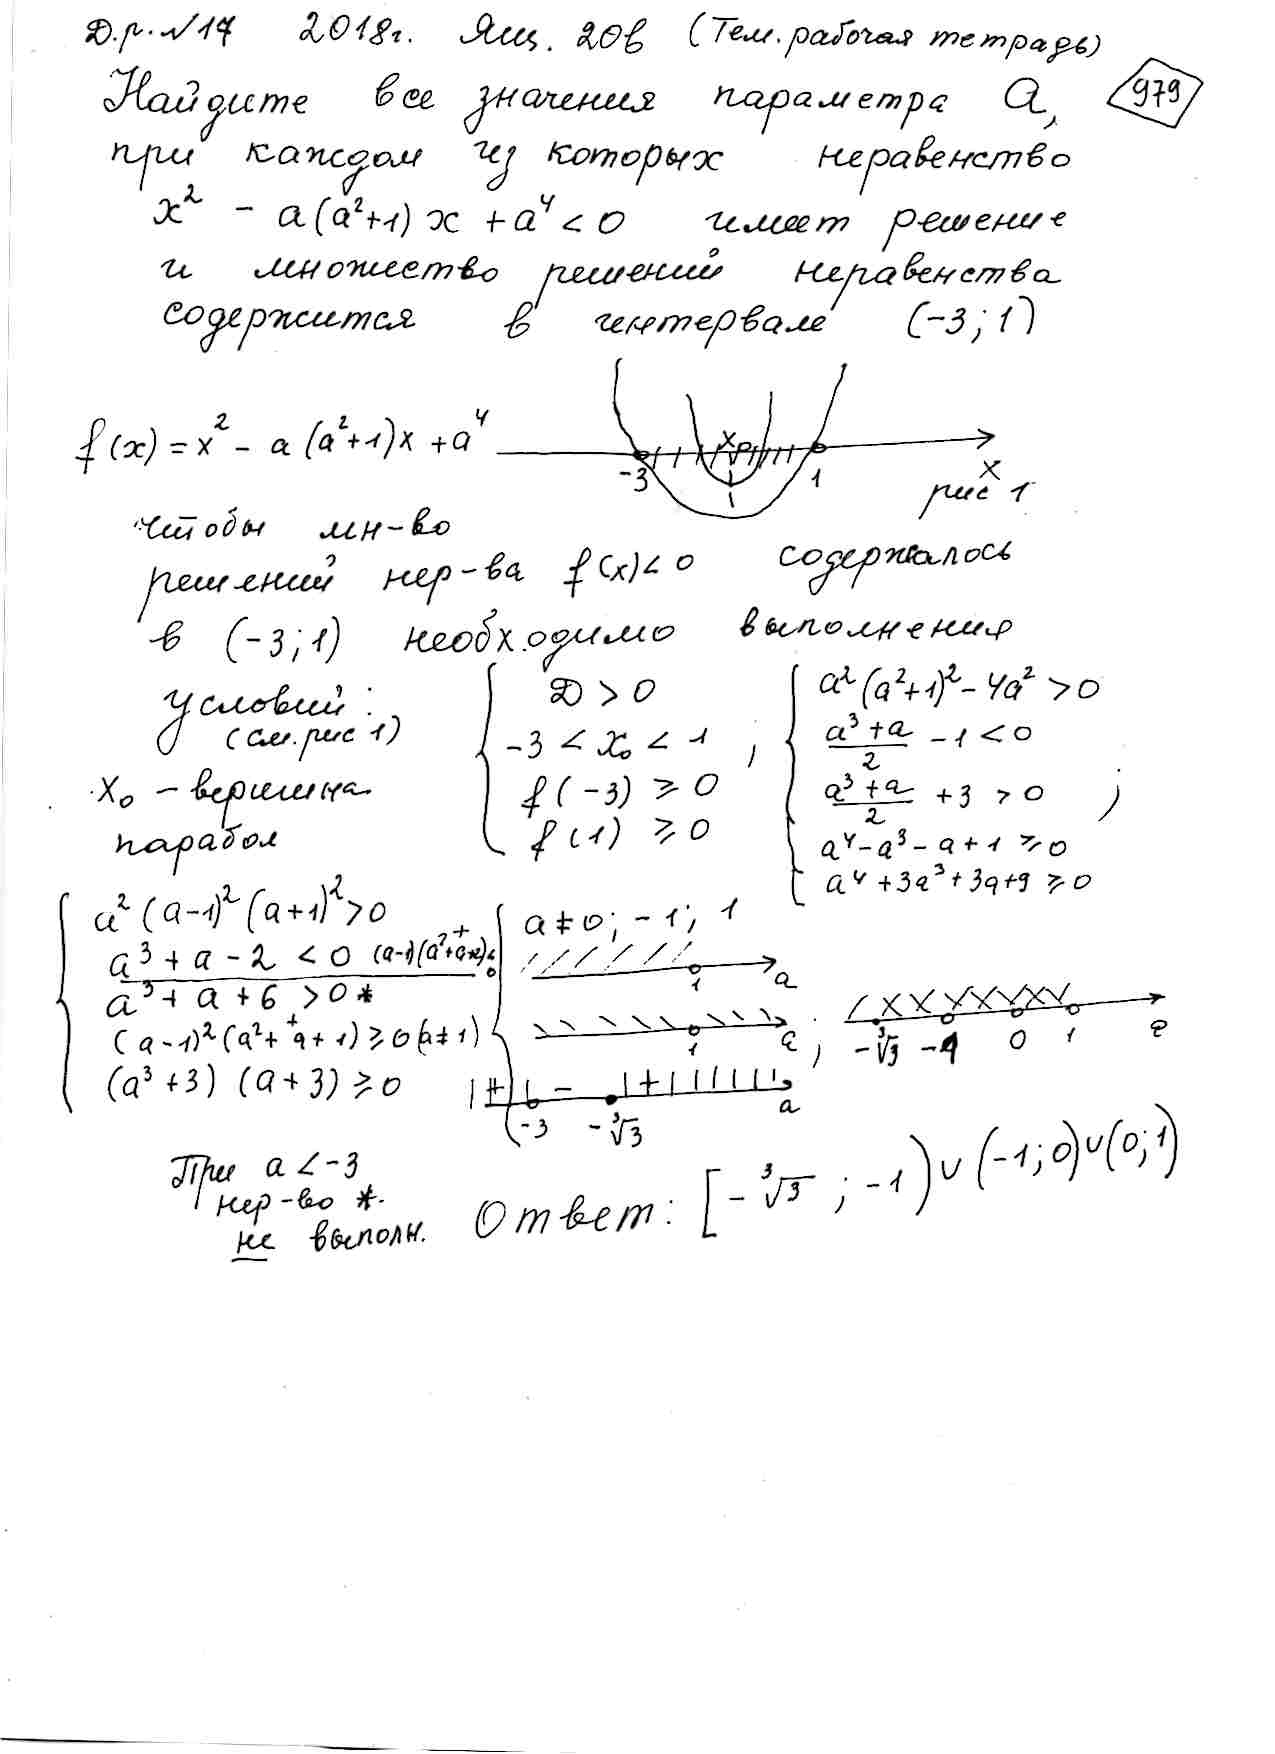 Д.р. №17 2018г. Ящ. 20в (Тем. рабочая тетрадь)
Найдите все значения параметра a, 979
при каждом из которых неравенство
x² - a(a²+1)x + a⁴ < 0 имеет решение
и множество решений неравенства
содержится в интервале (-3; 1)
f(x) = x² - a(a²+1)x + a⁴
x₀
-3 1 x
рис 1
чтобы мн-во
решений нер-ва f(x)<0 содержалось
в (-3; 1) необх.одимо выполнения
условий:
(см. рис 1)
x₀ - вершина
парабол
{ Д > 0
-3 < x₀ < 1
f(-3) ⩾ 0
f(1) ⩾ 0 ,
{ a²(a²+1)² - 4a² > 0
(a³+a)/2 - 1 < 0
(a³+a)/2 + 3 > 0
a⁴ - a³ - a + 1 ⩾ 0
a⁴ + 3a³ + 3a + 9 ⩾ 0 ;
{ a²(a-1)²(a+1)² > 0
a³ + a - 2 < 0 (a-1)(a²+a+2)<0
a³ + a + 6 > 0 *
(a-1)²(a² + a + 1) ⩾ 0 (a≠1)
(a³+3)(a+3) ⩾ 0
{ a ≠ 0; -1; 1
1 a
1 a ;
+ - + -3 -∛3 a
-∛3 -1 0 1 a
При a < -3
нер-во *
не выполн.
Ответ: [-∛3; -1) ∪ (-1; 0) ∪ (0; 1)